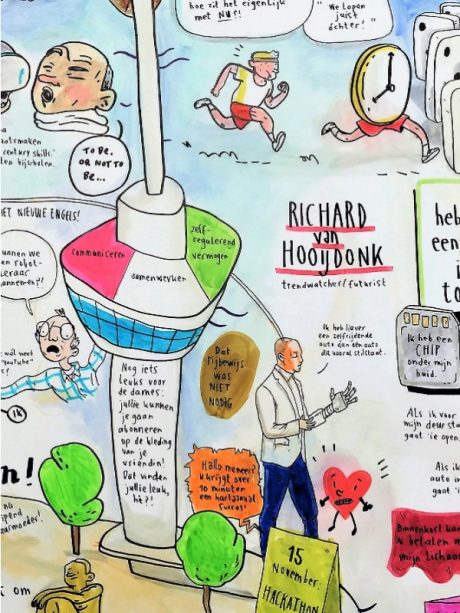 hoe zit het eigenlijk
met NU?!
"We lopen
juist
achter!"
atsmaken
century skills.
len bijscholen.
TO BE,
OR NOT TO
BE...
HET NIEUWE ENGELS!
unnen we
en robot-
leraar
aannemen?!
wat weet
youtube"
IK
communiceren
zelf-
regulerend
vermogen
samenwerken
RICHARD
van
HOOIJDONK
trendwatcher/futurist
heb
een
i
to
Ik heb een
CHIP
onder mijn
huid.
Ik heb liever
een zelfrijdende
auto dan een auto
die vooral stilstaat.
Dat
rijbewijs
was
NIET
NODIG
Nog iets
leuks voor
de dames:
jullie kunnen
je gaan
abonneren
op de kleding
van je
vriendin!
Dat vinden
jullie leuk,
hè?!
Hallo meneer?
U krijgt over
10 minuten
een hartaanval
succes!
Als ik voor
mijn deur sta
gaat 'ie open,
Als ik
auto i
gaat '
Binnenkort kan
ik betalen m
mijn lichaa
n!
nls
ipend
aarmoeder!
ik om
15
November
HACKATHON